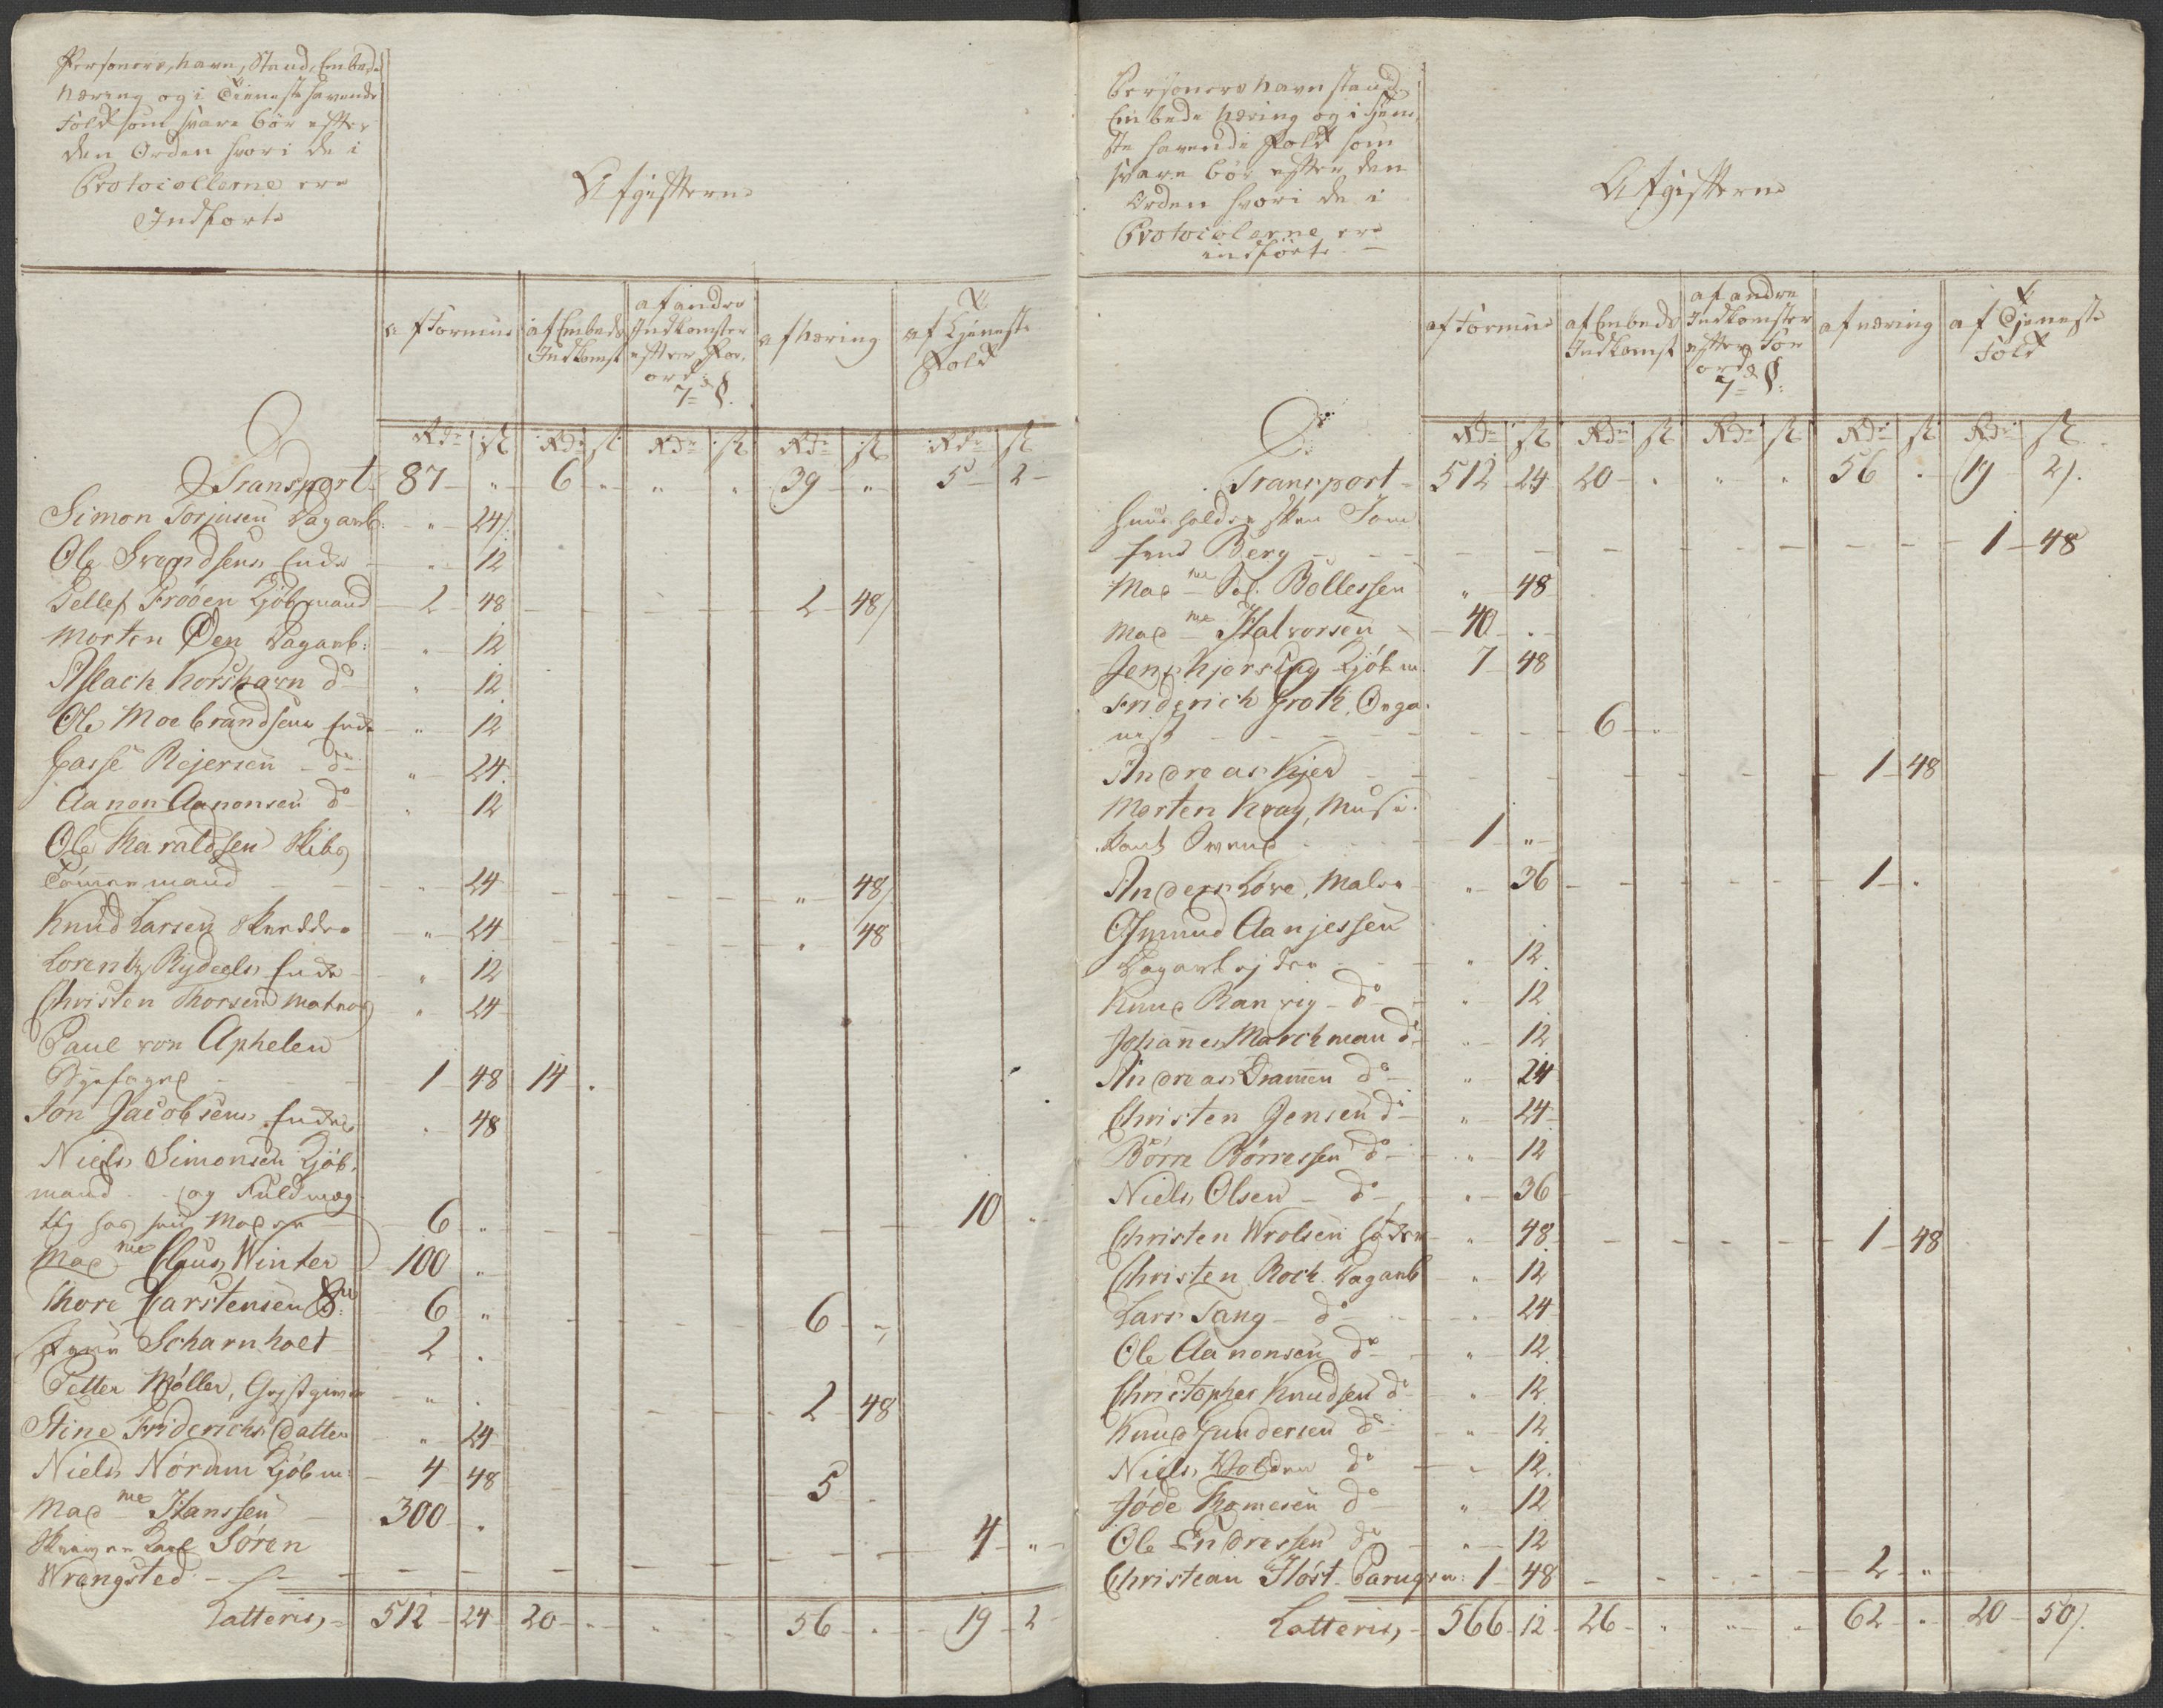 Personers, havn, Stand, Embede
Næring og i Tieneste havende
Folk som svare bör efter
den Orden hvori de i
Protocollerne ere
Indförte
Afgifterne
af Formue af Embeds Indkomst af andre Indkomster efter For. ord: 7de §. af Næring af Tjeneste Folk
Rdr ß Rdr ß Rdr ß Rdr ß Rdr ß
Transport 87 " 6 " " " 39 " 5 2
Simon Torjusen Dagarb: " 24
Ole Svendsens Enke " 12
Dellef Frøoen Kjöbmand 2 48 2 48
Morten Oen Dagarb: " 12
Aslach Korshavn do " 12
Ole Moe brandsens Enke " 12
Gasse Rejersen do " 24
Aanon Aanonsen do " 12
Ole Haraldsen Skibs
Tömmermand " 24 " 48
Knud Larsen Skredder " 24 " 48
Lorentz Rydeels Enke " 12
Christen Thorsen Matros " 24
Paul von Aphelen
Byefoged 1 48 14 "
Jon Jacobsens Enke " 48
Niels Simonsen Kjöb.
mand og Fuldmæg
tig hos sin Moder 6 " 10 "
Madme Claus Winter 100 "
Thore Carstensen Sr: 6 " 6 "
Scharnholt 2 "
Petter Møller, Gjestgiver " " 2 48
Stine Friderichs Datter " 24
Niels Nórum Kjöbm: 4 48 5 "
Madme Hanssen 300 "
Skriver Karl Søren 4 "
Wrangsted
Latteris, 512 24 20 " " " 56 " 19 2
Personers Navn stand
Embede Næring og i Tjene
ste havende Folk som
svare bör efter den
Orden hvori de i
Protocolerne ere
indförte
Afgifterne
af Formue af Embeds Indkomst af andre Indkomster efter For ord 7de §: af næring af Tjeneste Folk
Rdr ß Rdr ß Rdr ß Rdr ß Rdr ß
Transport 512 24 20 " " " 56 " 19 2
Huusholdersken Jom
frue Berg 1 48
Madme Sal. Bollessen " 48
Madme Halvorsen 40 "
Jens Kjorsing Kjöbm. 7 48
Friderich Groth, Orga
nist 6 "
Andreas Kjer 1 48
Morten Krag, Musi
kant Svend 1 "
Anders Löve, Maler " 36 1 "
Osmund Aanjessen
Dagarbejder " 12
Knud Ranvig do " 12
Johannes Marchman do " 12
Andreas Dramen do " 24
Christen Jensen do " 24
Börre Börressen do " 12
Niels Olsen do " 36
Christen Wrolsen " 48 1 48
Christen Roch Dagarb " 12
Lars Tang do " 24
Ole Aanonsen do " 12
Christopher Knudsen do " 12
Knud Gundersen do " 12
Niels Holden do " 12
Jöde Thomesen do " 12
Ole Endressen do " 12
Christian Höst Parugm: 1 48 2 "
Latteris, 566 12 26 " " " 62 " 20 50